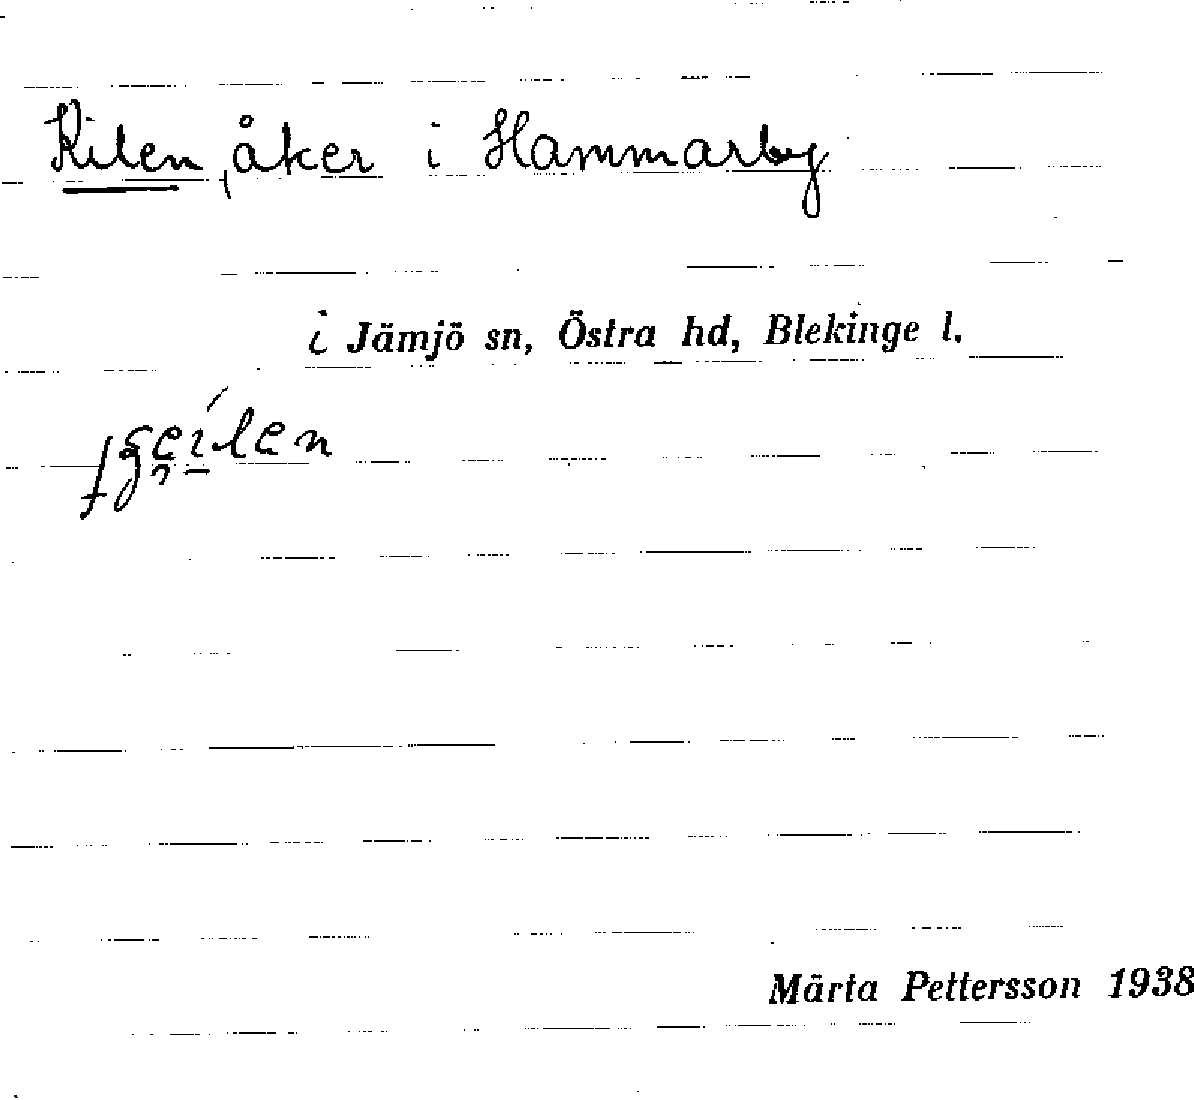 Kilen, åker i Hammarby
i Jämjö sn, Östra hd, Blekinge l.
Märta Pettersson 1938